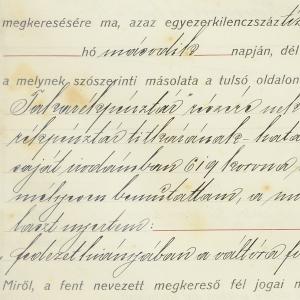 megkeresésére ma, azaz egyezerkilenczszáz
hó második napján, dél
a melynek szószerinti másolata a tulsó oldalon
Takarékpénztár" részére
rékpénztár titkárának hata
saját irodámban 619 korona
mélyesen bemutattam, a
laszt nyertem:
fedezet hiányjában a váltóra
Miről, a fent nevezett megkereső fél jogai